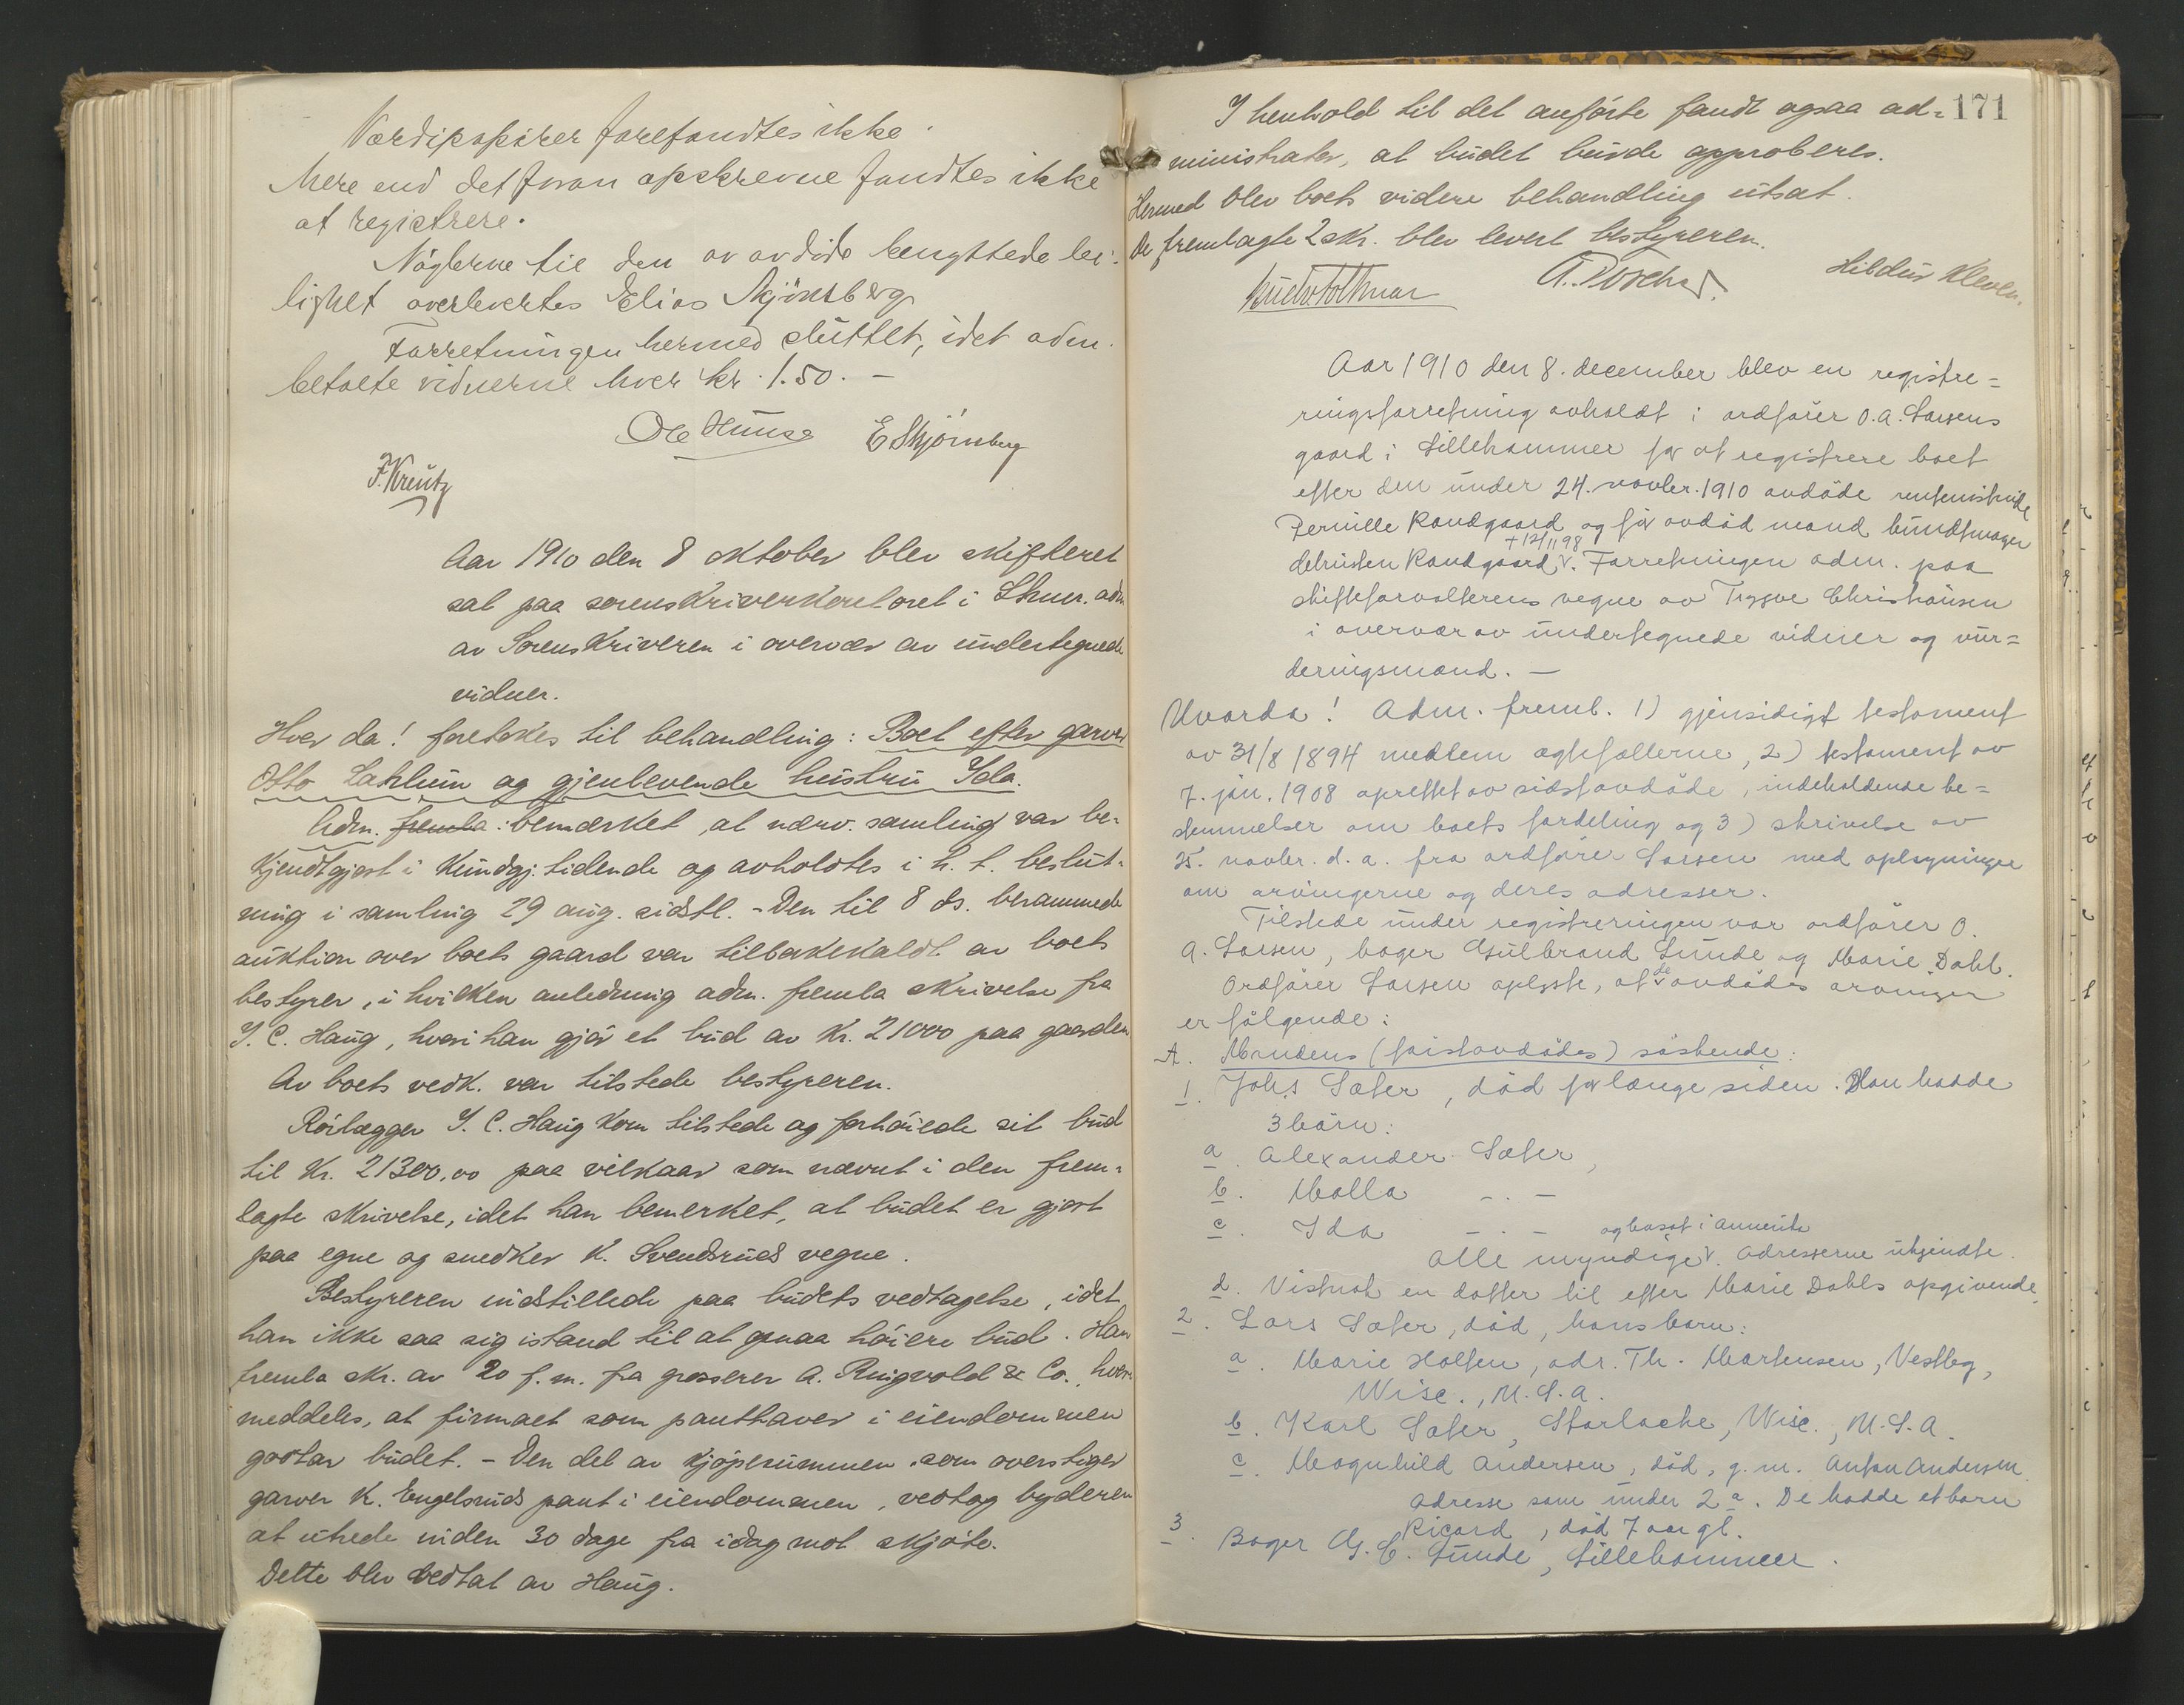 Værdipapirer forefandtes ikke.
Mere end det foran opskrevne fandtes ikke
at registrere.
Nøglerne til den av avdøde benyttede lei-
lighet overlevertes Elias Skjönsberg
Forretningen hermed sluttet, idet adm.
betalte vidnerne hver kr. 1.50. –
Ole Hunse E Skjönsberg
F. Kreutz
Aar 1910 den 8 oktober blev skifteret
sat paa sorenskriverkontoret i Lhmr. adm
av Sorenskriveren i overvær av undertegnede
vidner.
Hvor da! foretokes til behandling: Boet efter garver
Otto Lahlum og gjenlevende hustru Ida.
Adm. fremla: bemærket, at nærv. samling var be-
kjendtgjort i Kundgj. tidende og avholdtes i h. t. beslut-
ning i samling 29 aug. sidstl. – Den til 8 ds. berammede
auktion over boets gaard var tilbakekaldt av boets
bestyrer, i hvilken anledning adm. fremla skrivelse fra
J. C. Haug, hvori han gjør et bud av kr. 21000 paa gaarden
Av boets vedk. var tilstede bestyreren.
Rørlægger J. C. Haug kom tilstede og forhøiede sit bud
til kr. 21300,00 paa vilkaar som nævnt i den frem-
lagte skrivelse, idet han bemerket, at budet er gjort
paa egne og snedker K. Svendsruds vegne.
Bestyreren indstillede paa budets vedtagelse, idet
han ikke saa sig istand til at opnaa høiere bud. Han
fremla skr. av 20 f. m. fra grosserer A. Ringvold & Co., hvori
meddeles, at firmaet som panthaver i eiendommen
godtar budet. – Den del av kjøpesummen som overstiger
garver K. Engelsruds pant i eiendommen, vedtog byderen
at utrede inden 30 dage fra idag mot skjøte.
Dette blev vedtat av Haug.
171
I henhold til det anførte fandt ogsaa ad-
ministrator, at budet burde approberes.
Hermed blev boets videre behandling utsat.
De fremlagte 2 skr. blev levert bestyreren.
Hildur Kleven.
Aar 1910 den 8. december blev en registre=
ringsforretning avholdt i ordfører O. A. Larsens
gaard i Lillehammer for at registrere boet
efter den under 24. novbr. 1910 avdøde rentenistinde
Pernille Randgaard og før avdød mand bundtmager
+ 12/11 98
Christen Randgaard. Forretningen adm. paa
skifteforvalterens vegne av Trygve Christiansen
i overvær av undertegnede vidner og vur=
deringsmænd. –
Hvorda! Adm. freml. 1) gjensidigt testament
av 31/8 1894 mellem ægtefællerne, 2) testament av
7. jan. 1908 oprettet av sidstavdøde, indeholdende be=
stemmelser om boets fordeling og 3) skrivelse av
25. novbr. d. a. fra ordfører Larsen med oplysninger
om arvingerne og deres adresser.
Tilstede under registreringen var ordfører O.
A. Larsen, bager Gulbrand Lunde og Marie Dahl.
Ordfører Larsen oplyste, at de avdødes arvinger
er følgende:
A. Mandens (førstavdødes) søskende:
1. Johs Sæter, død for længe siden. Han hadde
3 børn:
a. Alexander Sæter,
b. Malla – . –
c. Ida – . –
og bosat i Amerika
Alle myndige. Adresserne ukjendte.
d. Vistnok en datter til efter Marie Dahls opgivende.
2. Lars Sæter, død, hans barn:
a. Marie Holsen, adr. Th. Mortensen, Westby,
Wisc., U. S. A.
b. Karl Sæter, Starlacke, Wisc., U. S. A.
c. Magnhild Andersen, død, g. m. Anton Andersen
Adresse som under 2 a. De hadde et barn
Ricard, død 7 aar gl.
3. Bager G. C. Lunde, Lillehammer.